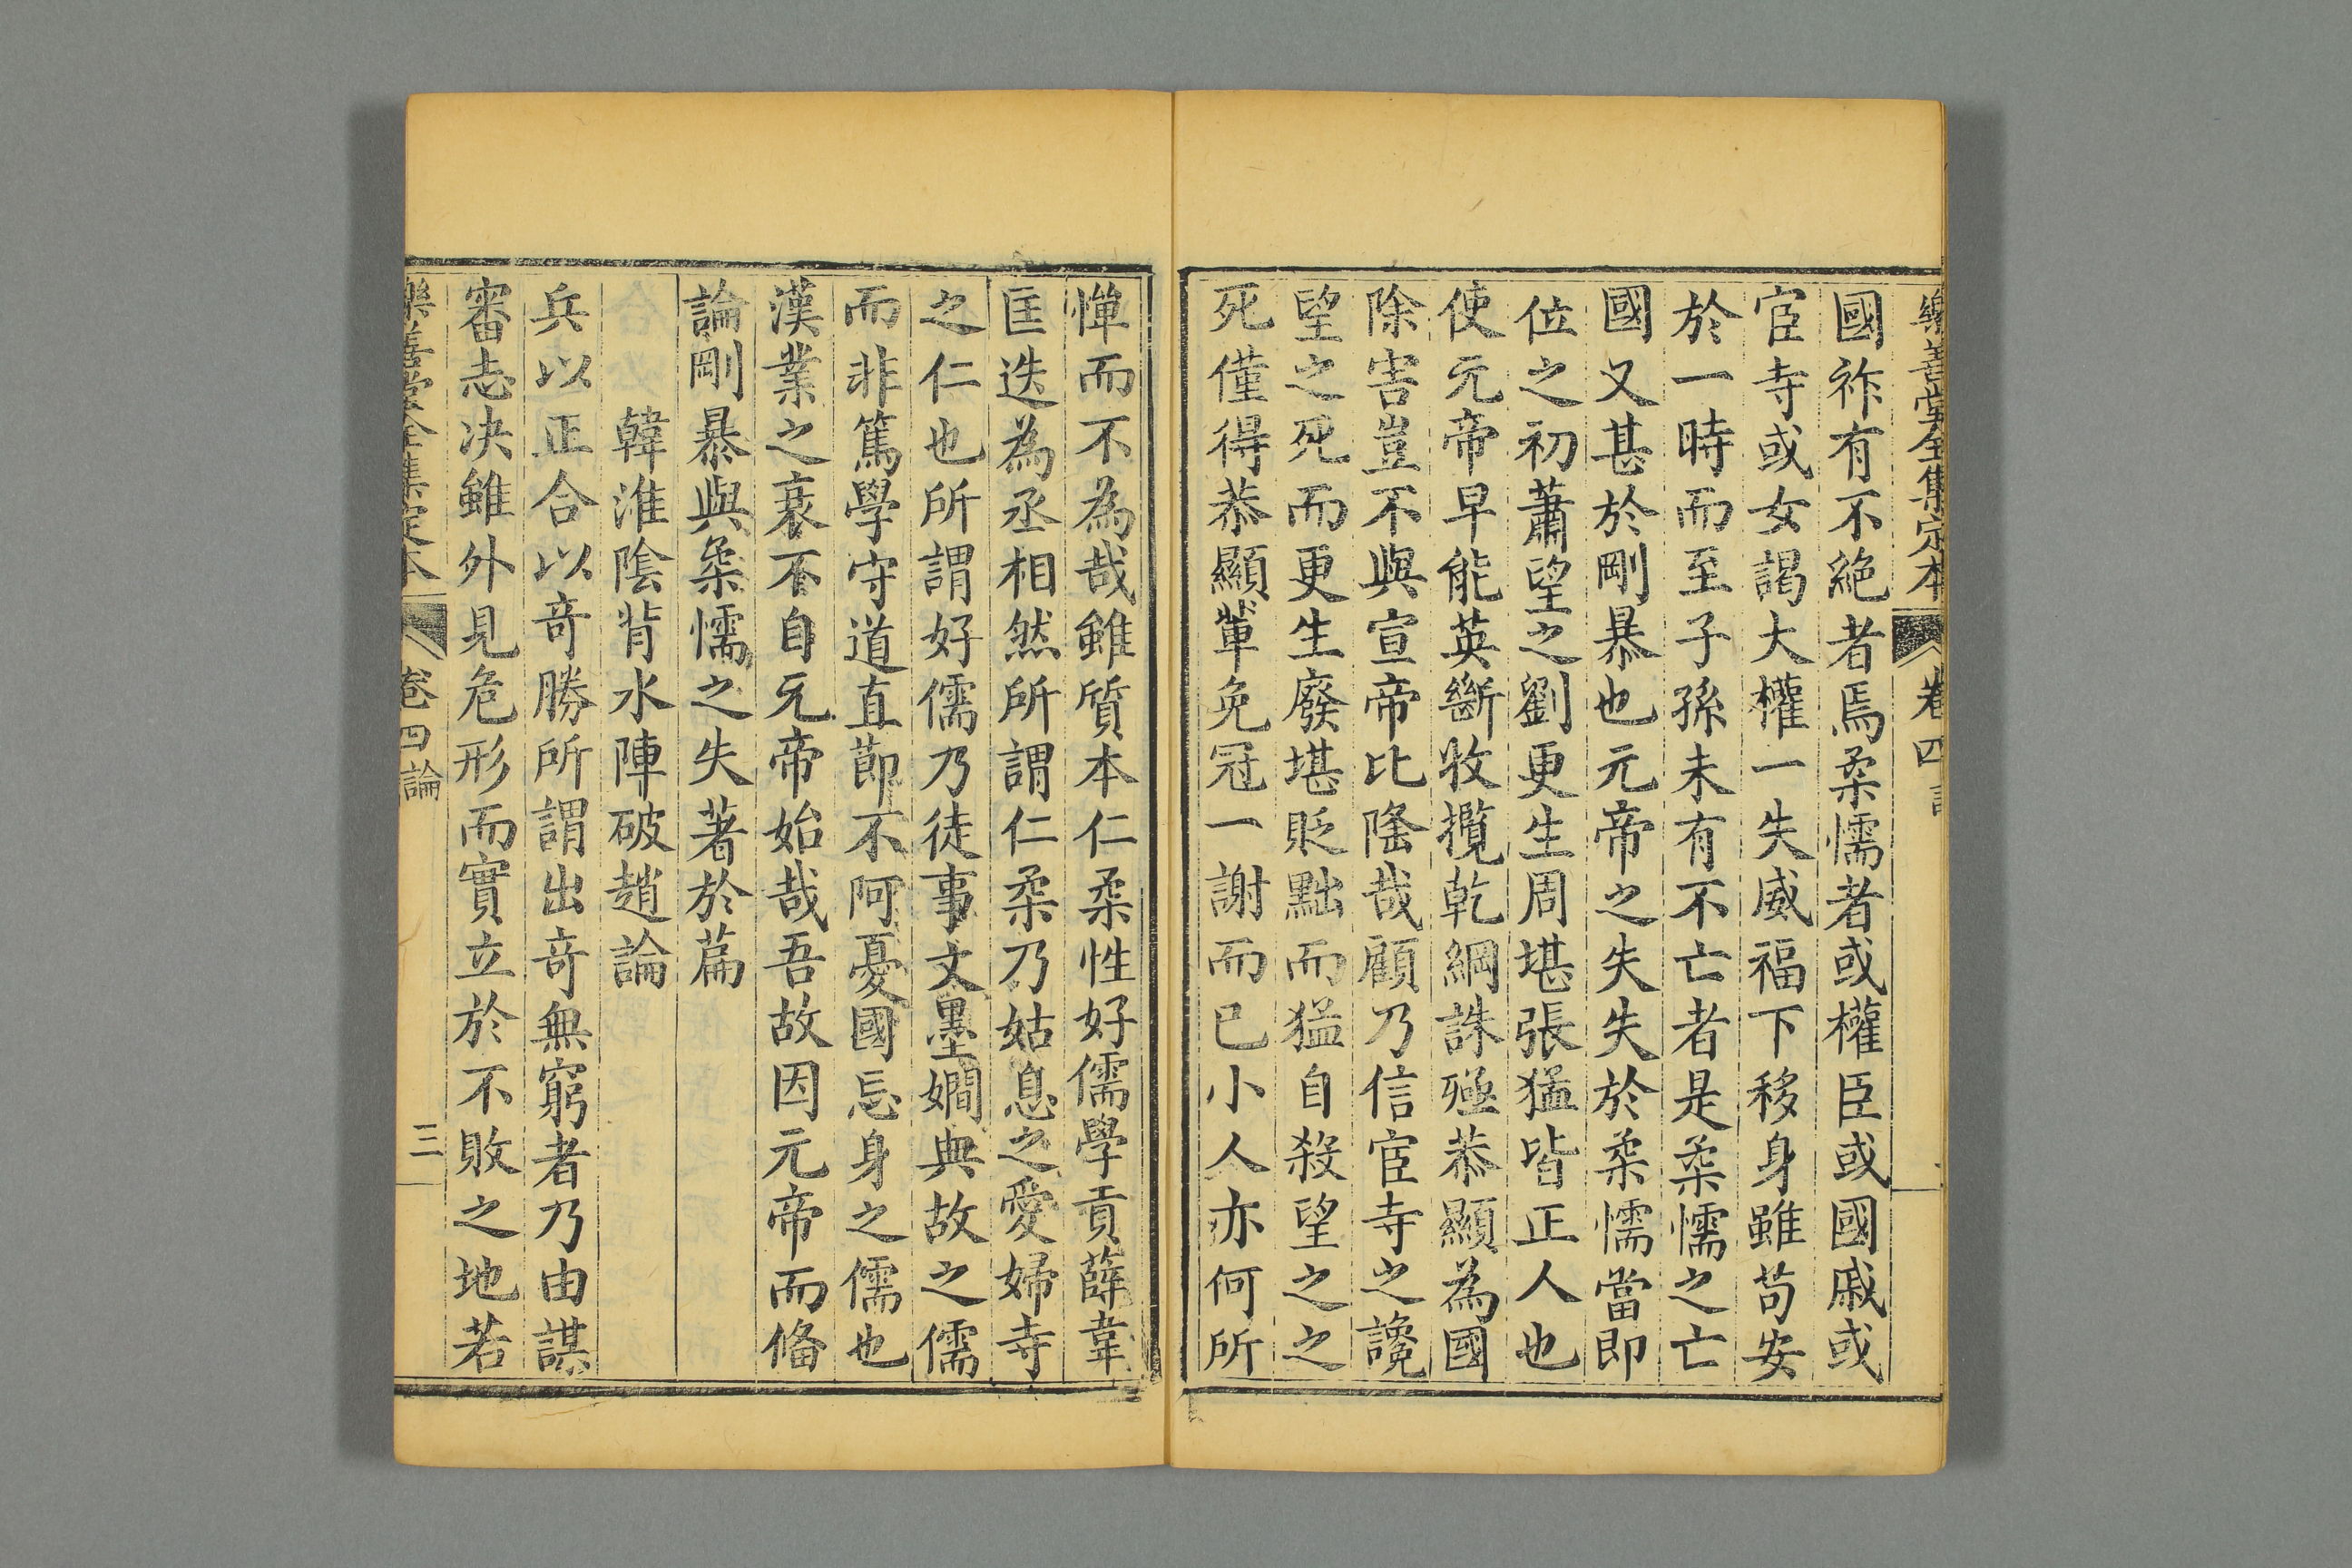 樂善堂全集定本 卷四
國祚有不絕者焉柔懦者或權臣或國戚或
宦寺或女謁大權一失威福下移身雖苟安
於一時而至子孫未有不亡者是柔懦之亡
國又甚於剛暴也元帝之失失於柔懦當即
位之初蕭望之劉更生周堪張猛皆正人也
使元帝早能英斷收攬乾綱誅殛恭顯為國
除害豈不與宣帝比隆哉顧乃信宦寺之讒
望之死而更生廢堪貶黜而猛自殺望之之
死僅得恭顯輩免冠一謝而已小人亦何所
憚而不為哉雖質本仁柔性好儒學貢薛韋
匡迭為丞相然所謂仁柔乃姑息之愛婦寺
之仁也所謂好儒乃徒事文墨嫺典故之儒
而非篤學守道直節不阿憂國忘身之儒也
漢業之衰不自元帝始哉吾故因元帝而偹
論剛暴與柔懦之失著於篇
韓淮陰背水陣破趙論
兵以正合以奇勝所謂出奇無窮者乃由謀
審志決雖外見危形而實立於不敗之地若
樂善堂全集定本 卷四論 三